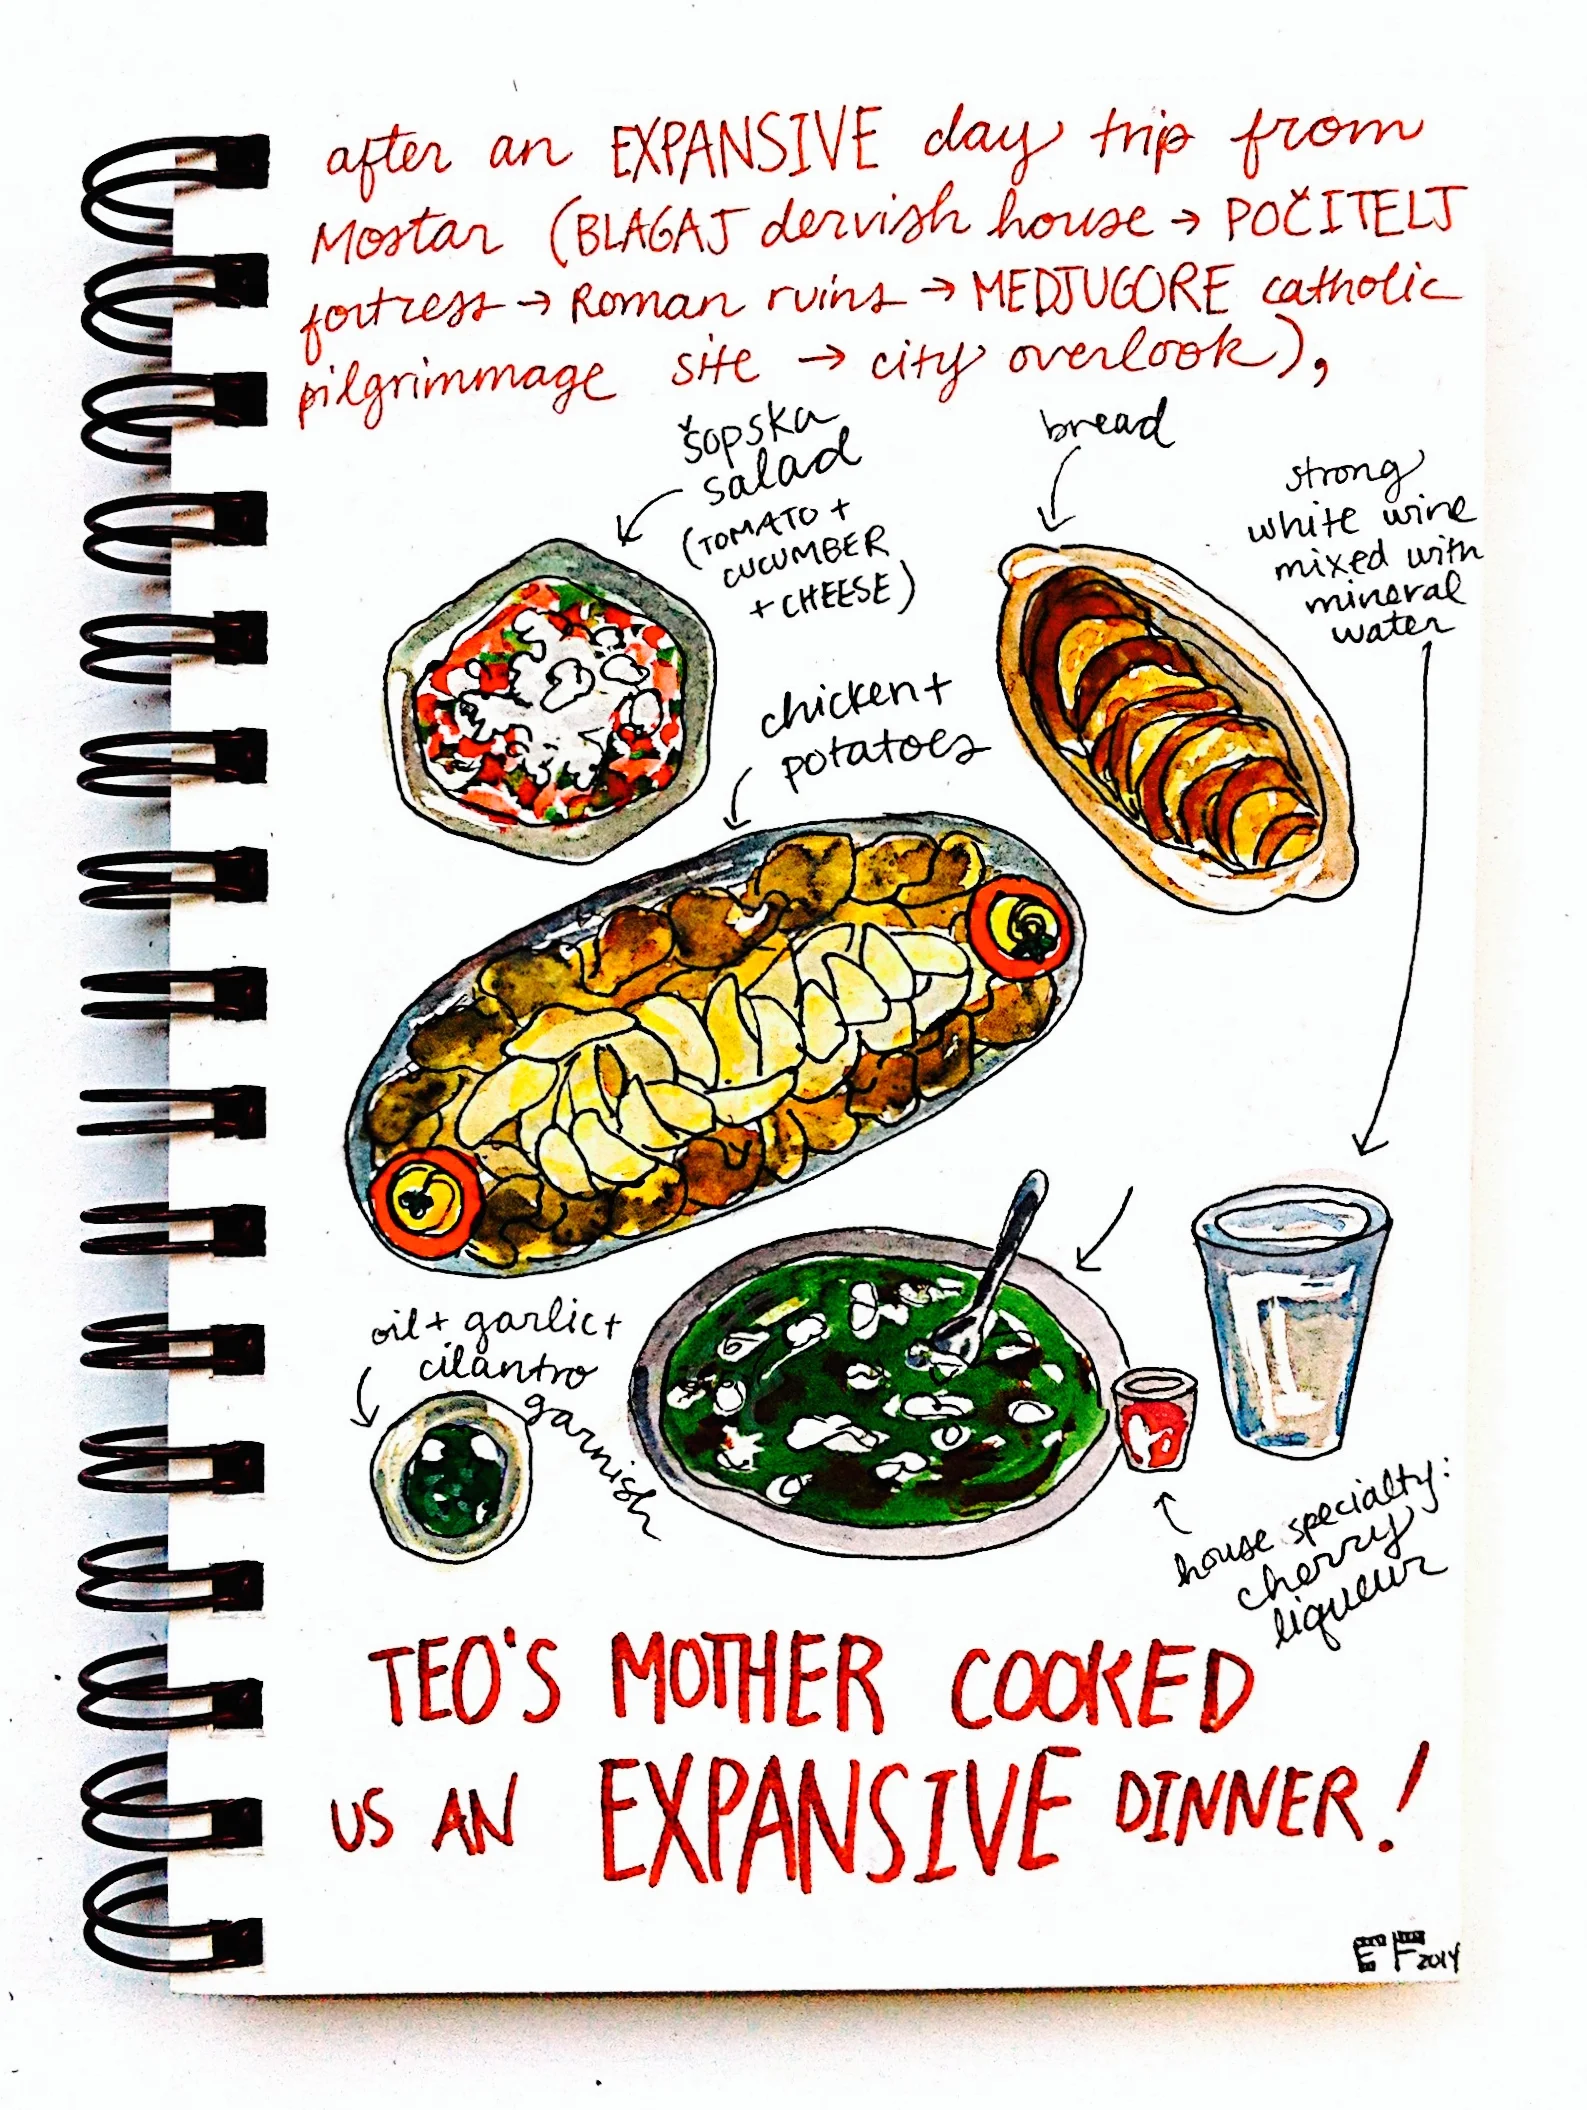 after an EXPANSIVE day trip from
Mostar (BLAGAJ dervish house → POČITELJ
fortress → Roman ruins → MEDJUGORE catholic
pilgrimmage site → city overlook),
šopska
salad
(TOMATO +
CUCUMBER
+ CHEESE)
bread
strong
white wine
mixed with
mineral
water
chicken +
potatoes
oil + garlic +
cilantro
garnish
house specialty:
cherry
liqueur
TEO'S MOTHER COOKED
US AN EXPANSIVE DINNER!
EF 2014